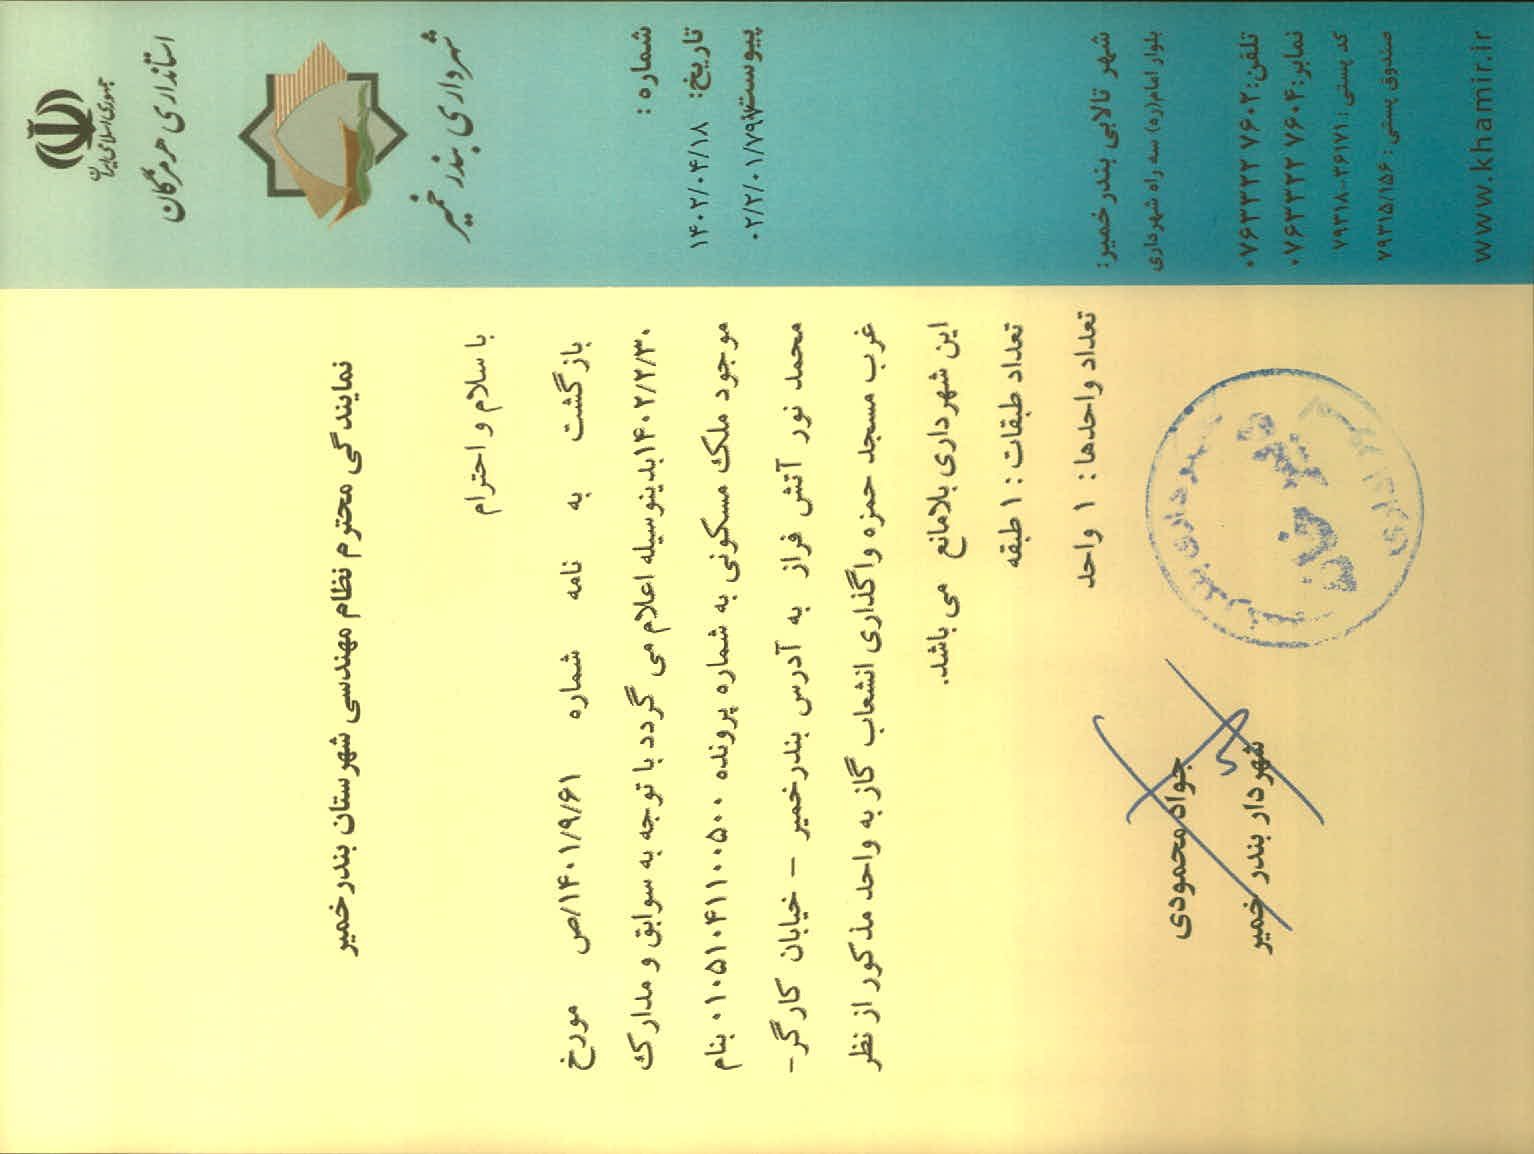 جمهوری اسلامی ایران
استانداری هرمزگان
شهرداری بندر خمیر
شماره :
تاریخ: ۱۴۰۲/۰۴/۱۸
پیوست ۰۲/۲/۰۱/۷۹۷
شهر تالابی بندر خمیر:
بلوار امام(ره) سه راه شهرداری
تلفن: ۰۷۶۳۳۲۲ ۷۶۰۲
نمابر: ۰۷۶۳۳۲۲ ۷۶۰۴
کد پستی : ۳۶۱۷۱-۷۹۳۱۸
صندوق پستی : ۷۹۳۱۵/۱۵۶
www.khamir.ir
نمایندگی محترم نظام مهندسی شهرستان بندر خمیر
با سلام و احترام
بازگشت به نامه شماره ۱۴۰۱/۹/۶۱/ص مورخ
۱۴۰۲/۲/۳۰بدینوسیله اعلام می گردد با توجه به سوابق و مدارک
موجود ملک مسکونی به شماره پرونده ۰۱۰۵۱۰۴۱۱۰۰۵۰۰ بنام
محمد نور آتش فراز به آدرس بندرخمیر – خیابان کارگر–
غرب مسجد حمزه واگذاری انشعاب گاز به واحد مذکور از نظر
این شهرداری بلامانع می باشد.
تعداد طبقات : ۱ طبقه
تعداد واحدها : ۱ واحد
جواد محمودی
شهردار بندر خمیر